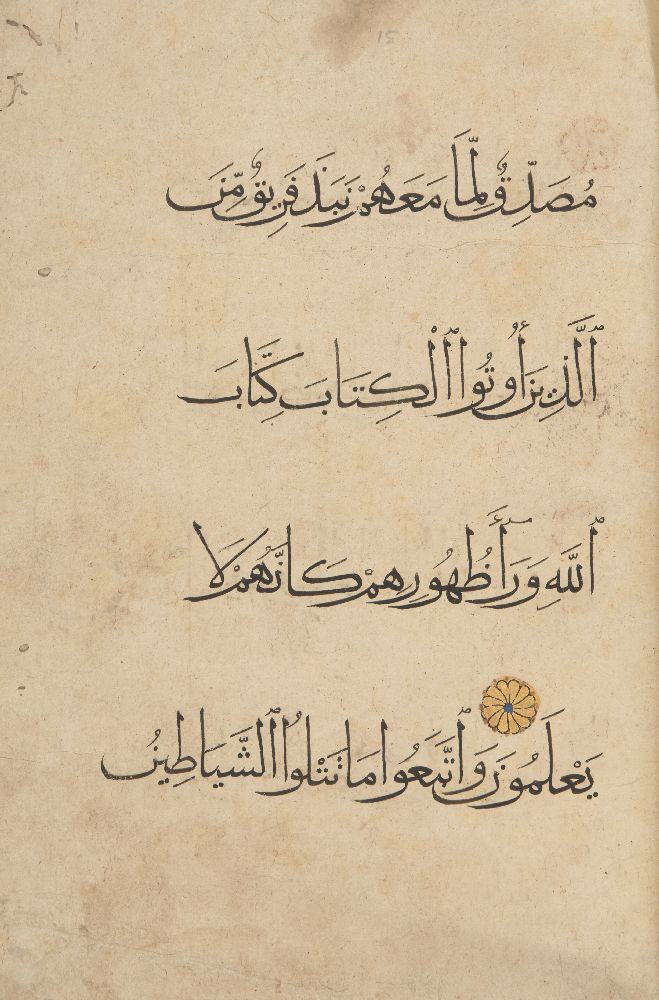 مُصَدِّقٌ لِّمَا مَعَهُمْ نَبَذَ فَرِيقٌ مِّنَ
ٱلَّذِينَ أُوتُوا ٱلْكِتَابَ كِتَابَ
ٱللَّهِ وَرَاءَ ظُهُورِهِمْ كَأَنَّهُمْ لَا
يَعْلَمُونَ وَٱتَّبَعُوا مَا تَتْلُوا ٱلشَّيَاطِينُ